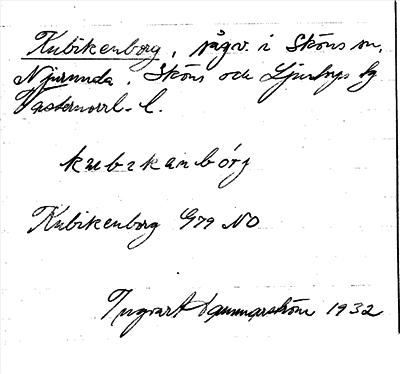 Kubikenborg, sågv. i Sköns sn,
Njurunda, Sköns och Ljustorps tg
Västernorrl. l.
kubikanbórj
Kubikenborg G79 NO
Ingvart Dammarström 1932